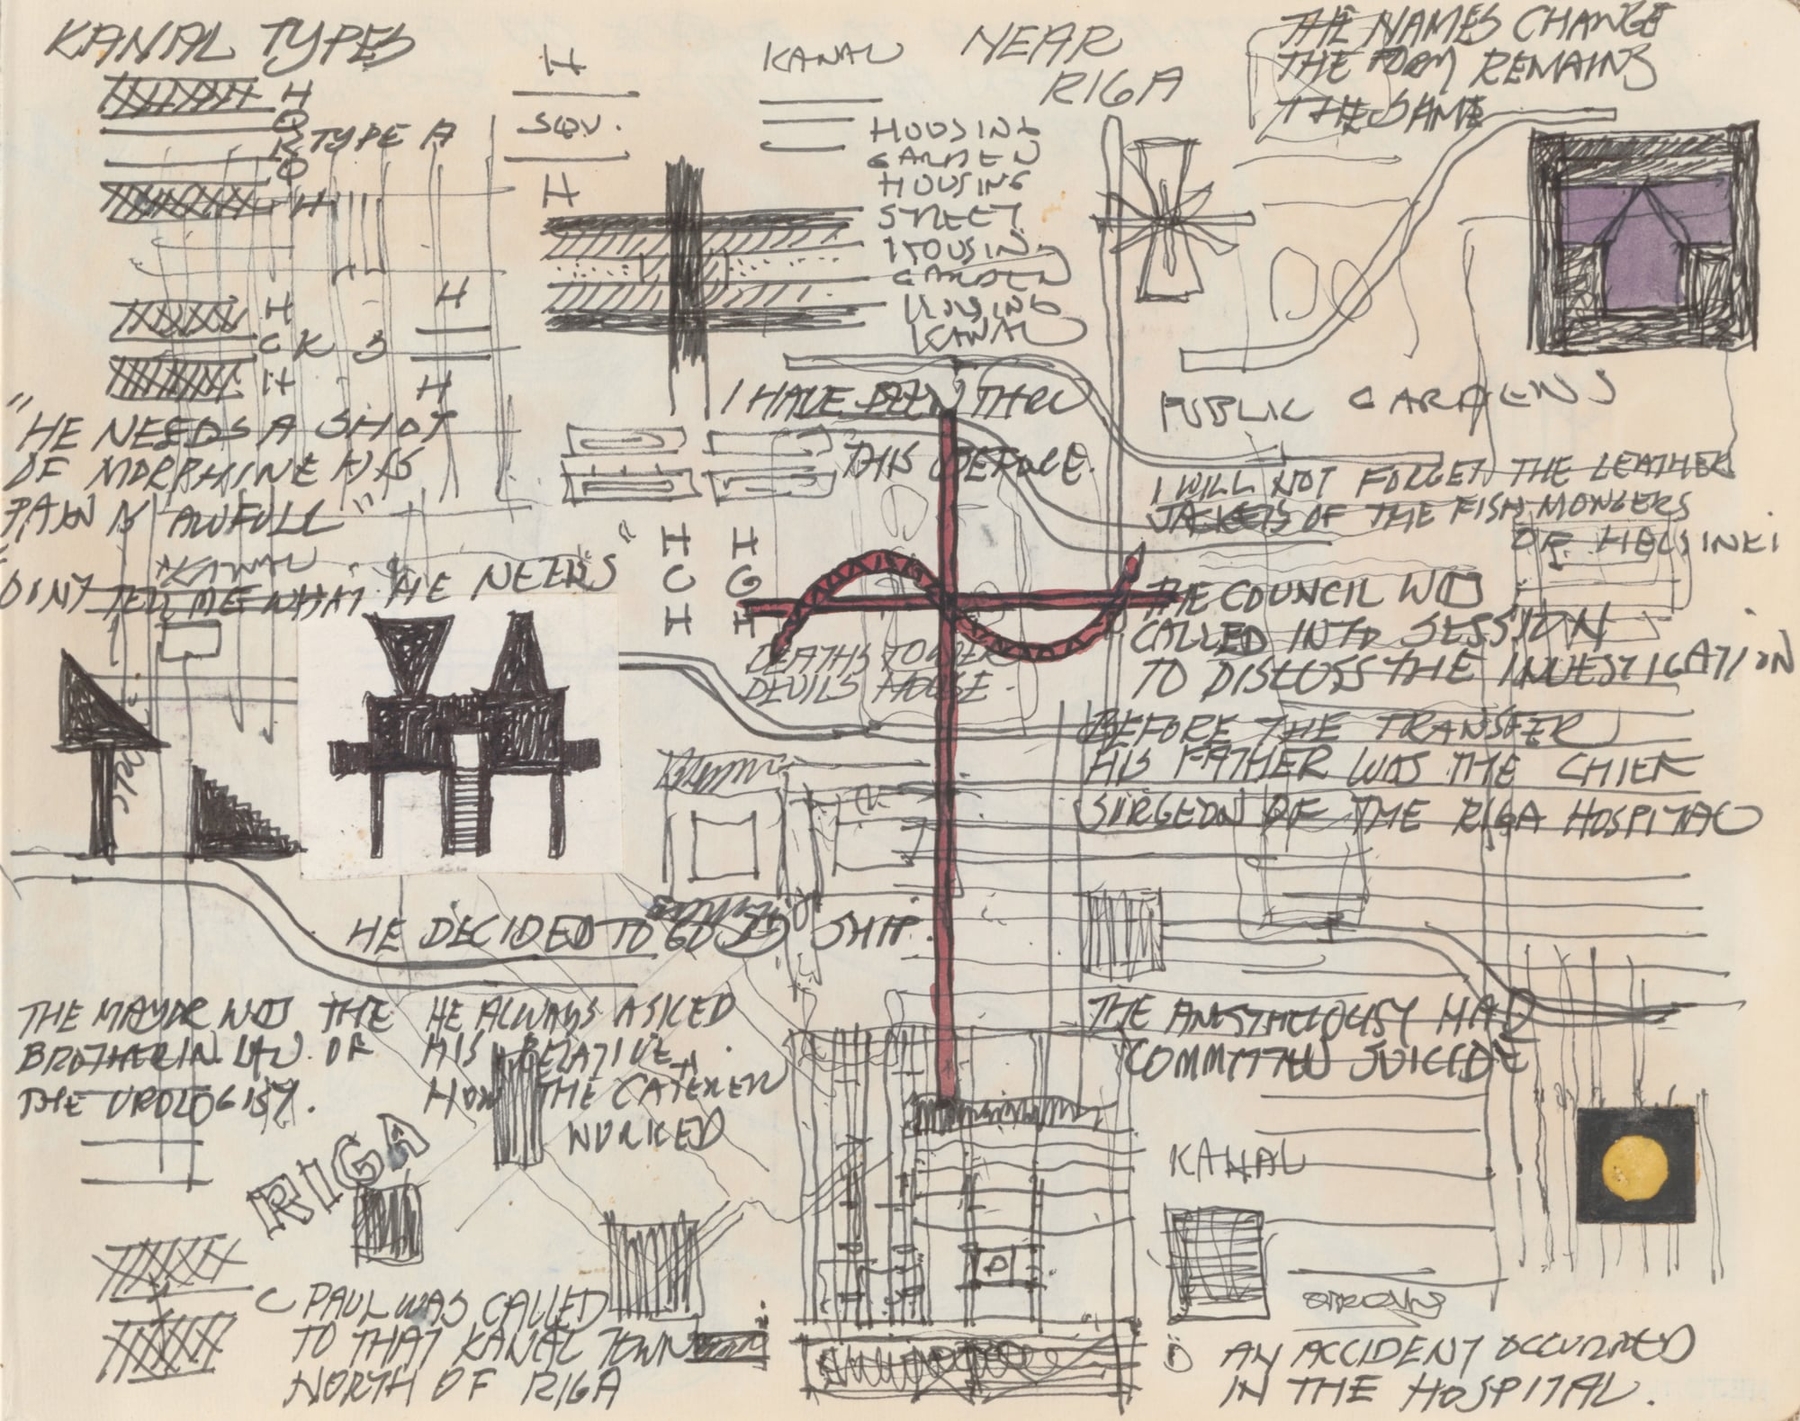 KANAL TYPES
H
Q
K TYPE A
Q
H
H
C K B
H
H
H
H
SQU.
H
KANAL
NEAR
RIGA
THE NAMES CHANGE
THE FORM REMAINS
THE SAME
HOUSING
GARDEN
HOUSING
STREET
HOUSING
GARDEN
HOUSING
KANAL
PUBLIC GARDENS
"HE NEEDS A SHOT
OF MORPHINE HIS
PAIN IS AWFULL"
"KANAL
DONT TELL ME WHAT HE NEEDS"
I HAVE BEEN THRU
THIS BEFORE.
H H
C G
H H
DEATHS TOWER
DEVILS HOUSE.
I WILL NOT FORGET THE LEATHER
JACKETS OF THE FISH MONGERS
OF HELSINKI
THE COUNCIL WAS
CALLED INTO SESSION
TO DISCUSS THE INVESTIGATION
BEFORE THE TRANSFER
HIS FATHER WAS THE CHIEF
SURGEON OF THE RIGA HOSPITAL
HE DECIDED TO GO BY SHIP.
THE MAYOR WAS THE
BROTHER IN LAW OF
THE UROLOGIST.
HE ALWAYS ASKED
HIS RELATIVE
HOW THE CATETER
WORKED
THE HAD
COMMITTED SUICIDE
RIGA
KANAL
PAUL WAS CALLED
TO THAT KANAL TOWN
NORTH OF RIGA
AN ACCIDENT OCCURRED
IN THE HOSPITAL.